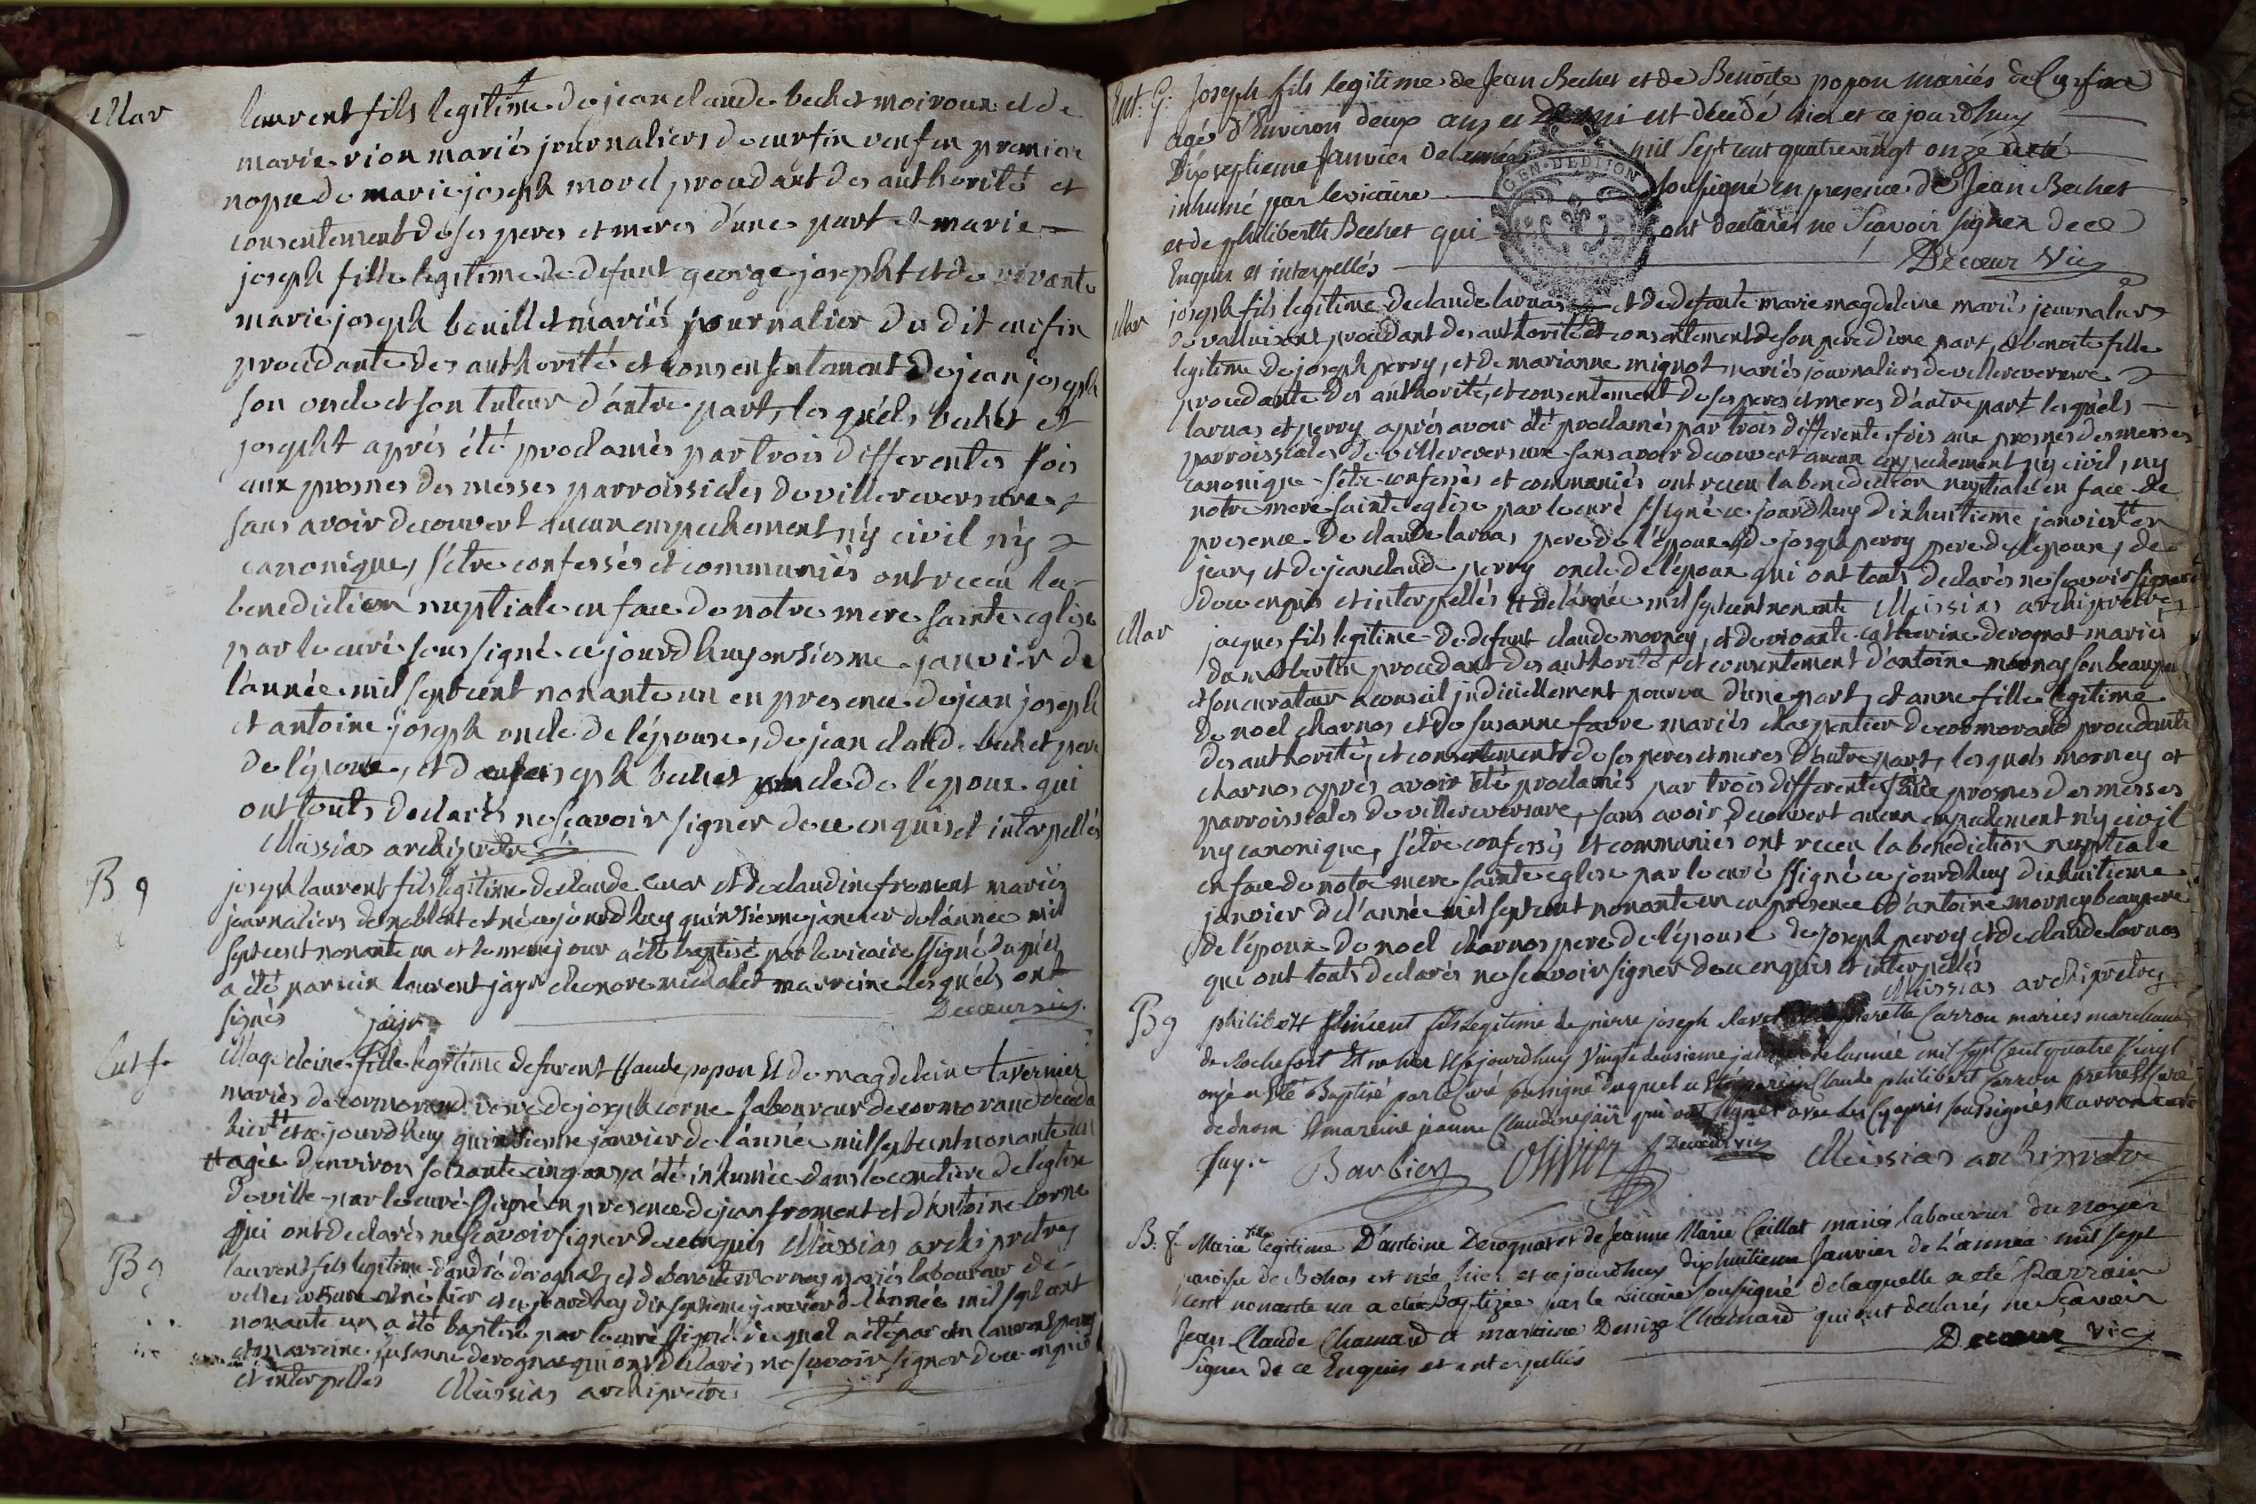 Mar
laurent fils legitime de jean claude bechet moiroux et de
marie rion mariés journaliers de curfin veuf en premiere
nopce de marie joseph morel procedant des authorité et
consentement de ses peres et meres d'une part et marie
joseph fille legitime de defunt george josepht et de vivante
marie joseph bouillet mariés journalier du dit curfin
procedante des authorité et consensentement de jean joseph
son oncle et son tuteur d'autre part, les quels bechet et
josepht aprés été proclamés par trois differentes fois
aux prosnes des messes parroissiales de villereversure
sans avoir decouvert aucun empechement n'y civil n'y
canonique, s'étre confessés et communiés ont receu la
benediction nuptiale en face de notre mere sainte eglise
par le curé sous signé ce jourd'huy onsiesme janvier de
l'année mil sept cent nonante un en presence de jean joseph
et antoine joseph oncle de l'épouse, de jean claude bechet pere
de l'époux, et de joseph bechet oncle de l'époux qui
ont touts declarés ne sçavoir signer de ce enquis et interpellés
Massias archiprêtre
B g
joseph laurent fils legitime de claude cuar et de claudine froment mariés
journaliers de noblent et né ce jourd'huy quinsième janvier de l'année mil
sept cent nonante un et le meme jour a été baptisé par le vicaire ssigné du quel
a été parrein laurent jayr eleonore michalet marreine les quels ont
signés jayr Decoeur vic.
Ent f.
Magdeleine fille legitime de furent Claude popon et de magdeleine tavernier
mariés de cormorand veuve de joseph corne laboureur de cormorand deceda
hier et ce jourd'huy quinsieme janvier de l'année mil sept cent nonante un
agée d'environ soixante cinq ans a été inhumée dans le cemetiere de l'eglise
de ville par le curé ssigné en presence de jean froment et d'antoine corne
qui ont declarés ne scavoir signer de ce enquis Massias archiprêtre
B g
laurent fils legitime d'andré derognat et de benoite mornay mariés laboureur de
villereversure et né hier et ce jourd'huy dix septieme janvier de l'année mil sept cent
nonante un a été baptisé par le curé ssigné du quel a été parein laurent perray
et marreine susanne derognat qui ont declarés ne scavoir signer de ce enquis
et interpellés Massias archiprêtre
Ent. G:
Joseph fils legitime de Jean Bechet et de Benoite popon mariés de Curfin
agé d'Environ deux ans et demi est decedé hier et ce jourdhuy
Dix septieme Janvier de l'année mil Sept cent quatre vingt onze a eté
inhumé par le vicaire sousigné en presence de Jean Bechet
GEN. DEDITION
et de philiberth Bechet qui ont declarés ne Sçavoir signer de ce
Enquis et interpellés Decoeur Vic
Mar
joseph fils legitime de claude larnas et de defunte marie magdeleine mariés journaliers
de valluisant procedant des authorité et consentement de son pere d'une part, et benoite fille
legitime de joseph perry, et de marianne mignot mariés journaliers de villereversure
procedante des authorité, et consentement de ses peres et meres d'autre part lesquels
larnas et perry, aprés avoir été proclamés par trois differentes fois aux prosnes des messes
parroissiales de villereversure sans avoir decouvert aucun empechement n'y civil, n'y
canonique s'étre confessés et communiés ont receu la benediction nuptiale en face de
notre mere sainte eglise par le curé ssigné ce jourd'huy dixhuitieme janvier en
presence de claude larnas pere de l'époux, de joseph perry pere de l'épouse, de
jean, et de jean claude perry oncle de l'épouse qui ont touts declarés ne scavoir signer
de ce enquis et interpellés de l'année mil sept cent nonante Massias archiprêtre
Mar
jacques fils legitime de defunt claude mornay, et de vivante catherine derognat mariés
procedant des authorité, et consentement d'antoine mornay son beaupere
et son curateur a conseil judiciellement pourvu d'une part, et anne fille legitime
de noel charnos et de susanne favre mariés charpentier de cormorand procedante
des authorité, et consentement de ses peres et meres d'autre part, les quels mornay et
charnos aprés avoir été proclamés par trois differentes fois aux prosnes des messes
parroissiales de villereversure, sans avoir decouvert aucun empechement n'y civil
n'y canonique, s'étre confessés et communiés ont receu la benediction nuptiale
en face de notre mere sainte eglise par le curé ssigné ce jourd'huy dixhuitieme
janvier de l'année mil sept cent nonante un en presence d'antoine mornay beaupere
de l'époux de noel charnos pere de l'épouse de joseph perry et de claude larnas
qui ont touts declarés ne scavoir signer de ce enquis et interpellés
Massias archiprêtre
B g
philibert Vincent fils legitime de pierre joseph claret pierrette Carron mariés marchand
de Rochefort Est né hier Et ce jourdhuy Vingt deuxieme janvier de lannée mil sept Cent quatre Vingt
onze a Eté Baptisé par le Curé soussigné duquel a Eté parrein Claude philibert Carron pretre Curé
de drom Et mareine jeanne Claudine jaïr qui ont signés avec les Cy après soussignés Carron curé
Jayr Barbier Olivier Decoeur vic Massias archiprêtre
B. f.
Marie fille legitime D'antoine Derognat et de Jeanne Marie Caillat mariés laboureur du noyer
paroisse de Bohas est née hier et ce jourdhuy dixhuitieme Janvier de L'année mil sept
cent nonante un a eté Baptizée par le vicaire sousigné delaquelle a eté Parrain
Jean Claude Chanard et maraine Denize Chanard qui ont declarés ne Scavoir
signer de ce Enquis et interpellés Decoeur vic